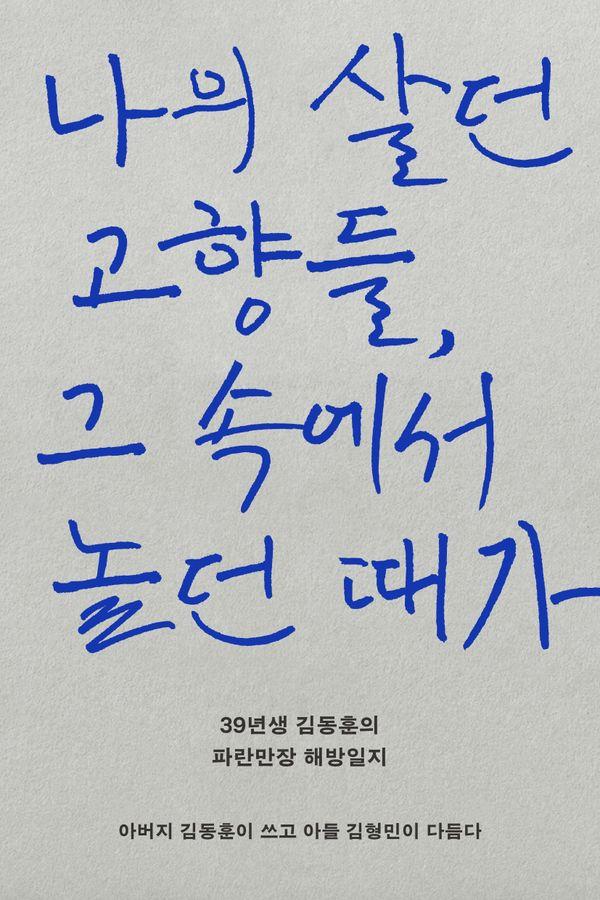 나의 살던
고향들,
그 속에서
놀던 때가
39년생 김동훈의
파란만장 해방일지
아버지 김동훈이 쓰고 아들 김형민이 다듬다